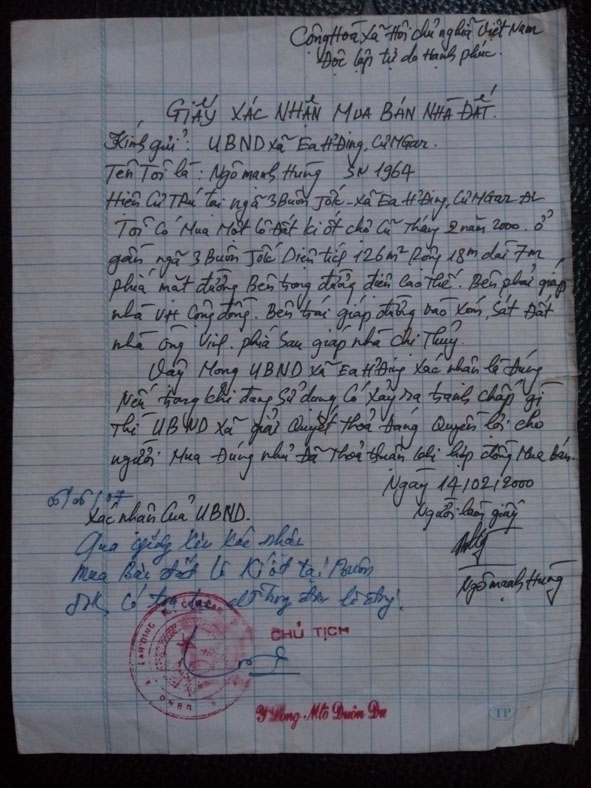 Cộng Hoà Xã Hội chủ nghĩa Việt Nam
Độc lập tự do Hạnh phúc.
GIẤY XÁC NHẬN MUA BÁN NHÀ ĐẤT.
Kính gửi: UBND Xã Ea H'Đing, Cư MGar.
Tên Tôi là: Ngô mạnh Hùng SN 1964
Hiện Cư Trú tại ngã 3 Buôn Jốk - xã Ea H'Đing, Cư MGar ĐL
Tôi Có Mua Một lô Đất ki ốt chợ Cũ Tháng 2 năm 2000. ở
gần ngã 3 Buôn Jốk Diện tích 126m² Rộng 18m dài 7m
phía mặt đường Bên trong đường điện cao thế. Bên phải giáp
nhà VH Cộng đồng. Bên trái giáp đường vào xóm, Sát Đất
nhà ông Vinh. phía Sau giáp nhà chị Thủy.
Vậy Mong UBND xã Ea H'Đing xác nhận là Đúng
Nếu trong khi đang Sử dụng Có Xảy ra tranh chấp gì
Thì UBND Xã giải Quyết Thoả Đáng Quyền lợi cho
người Mua Đúng như Đã Thoả thuận khi hợp đồng Mua bán.
Ngày 14/02/2000
Người làm giấy
Ngô mạnh Hùng
Xác nhận Của UBND.
mua bán đất lô Kiốt tại Buôn
CHỦ TỊCH
Y Dong - Mlô Duôn Du
TP